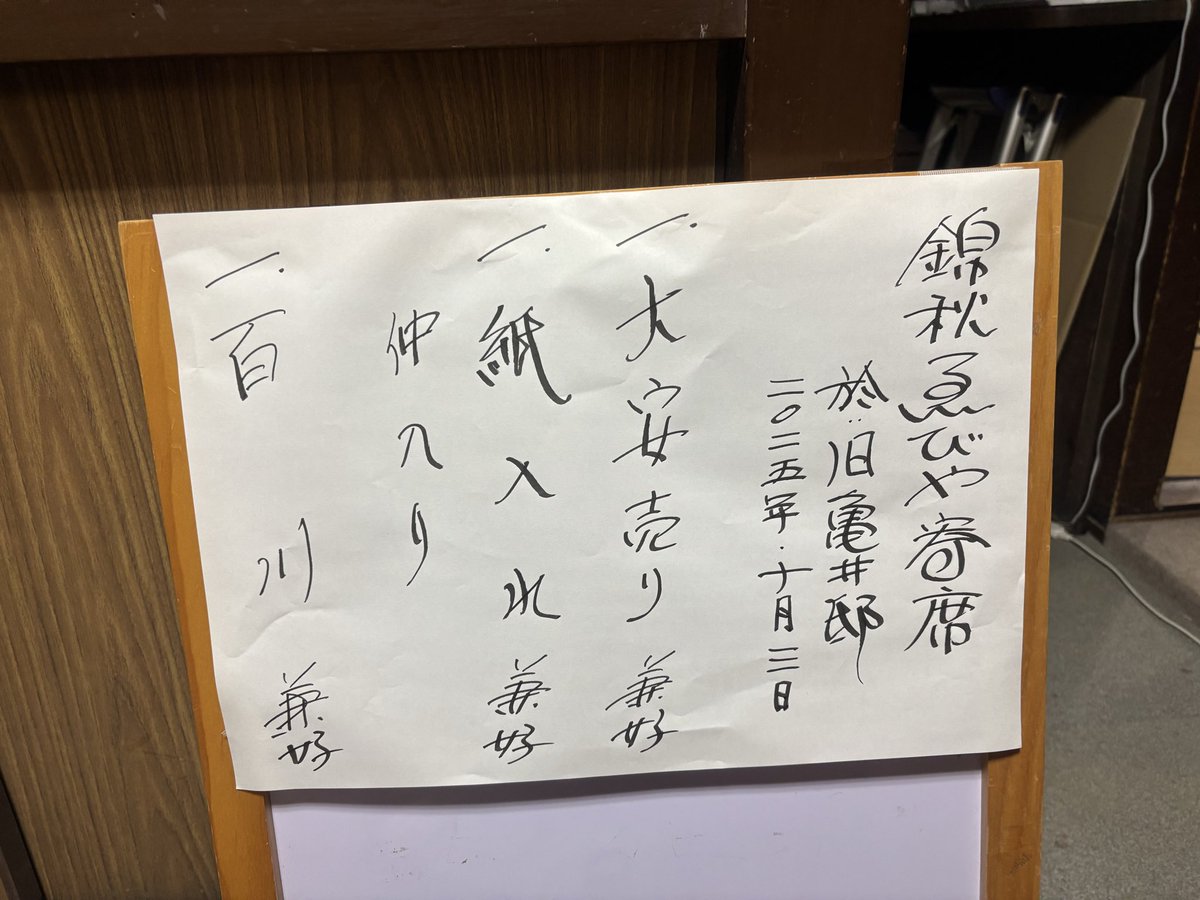 錦秋ゑびや寄席
於:旧亀井邸
二〇二五年・十月三日
一.大安売り 兼好
一.紙入れ 兼好
仲入り
一.百川 兼好